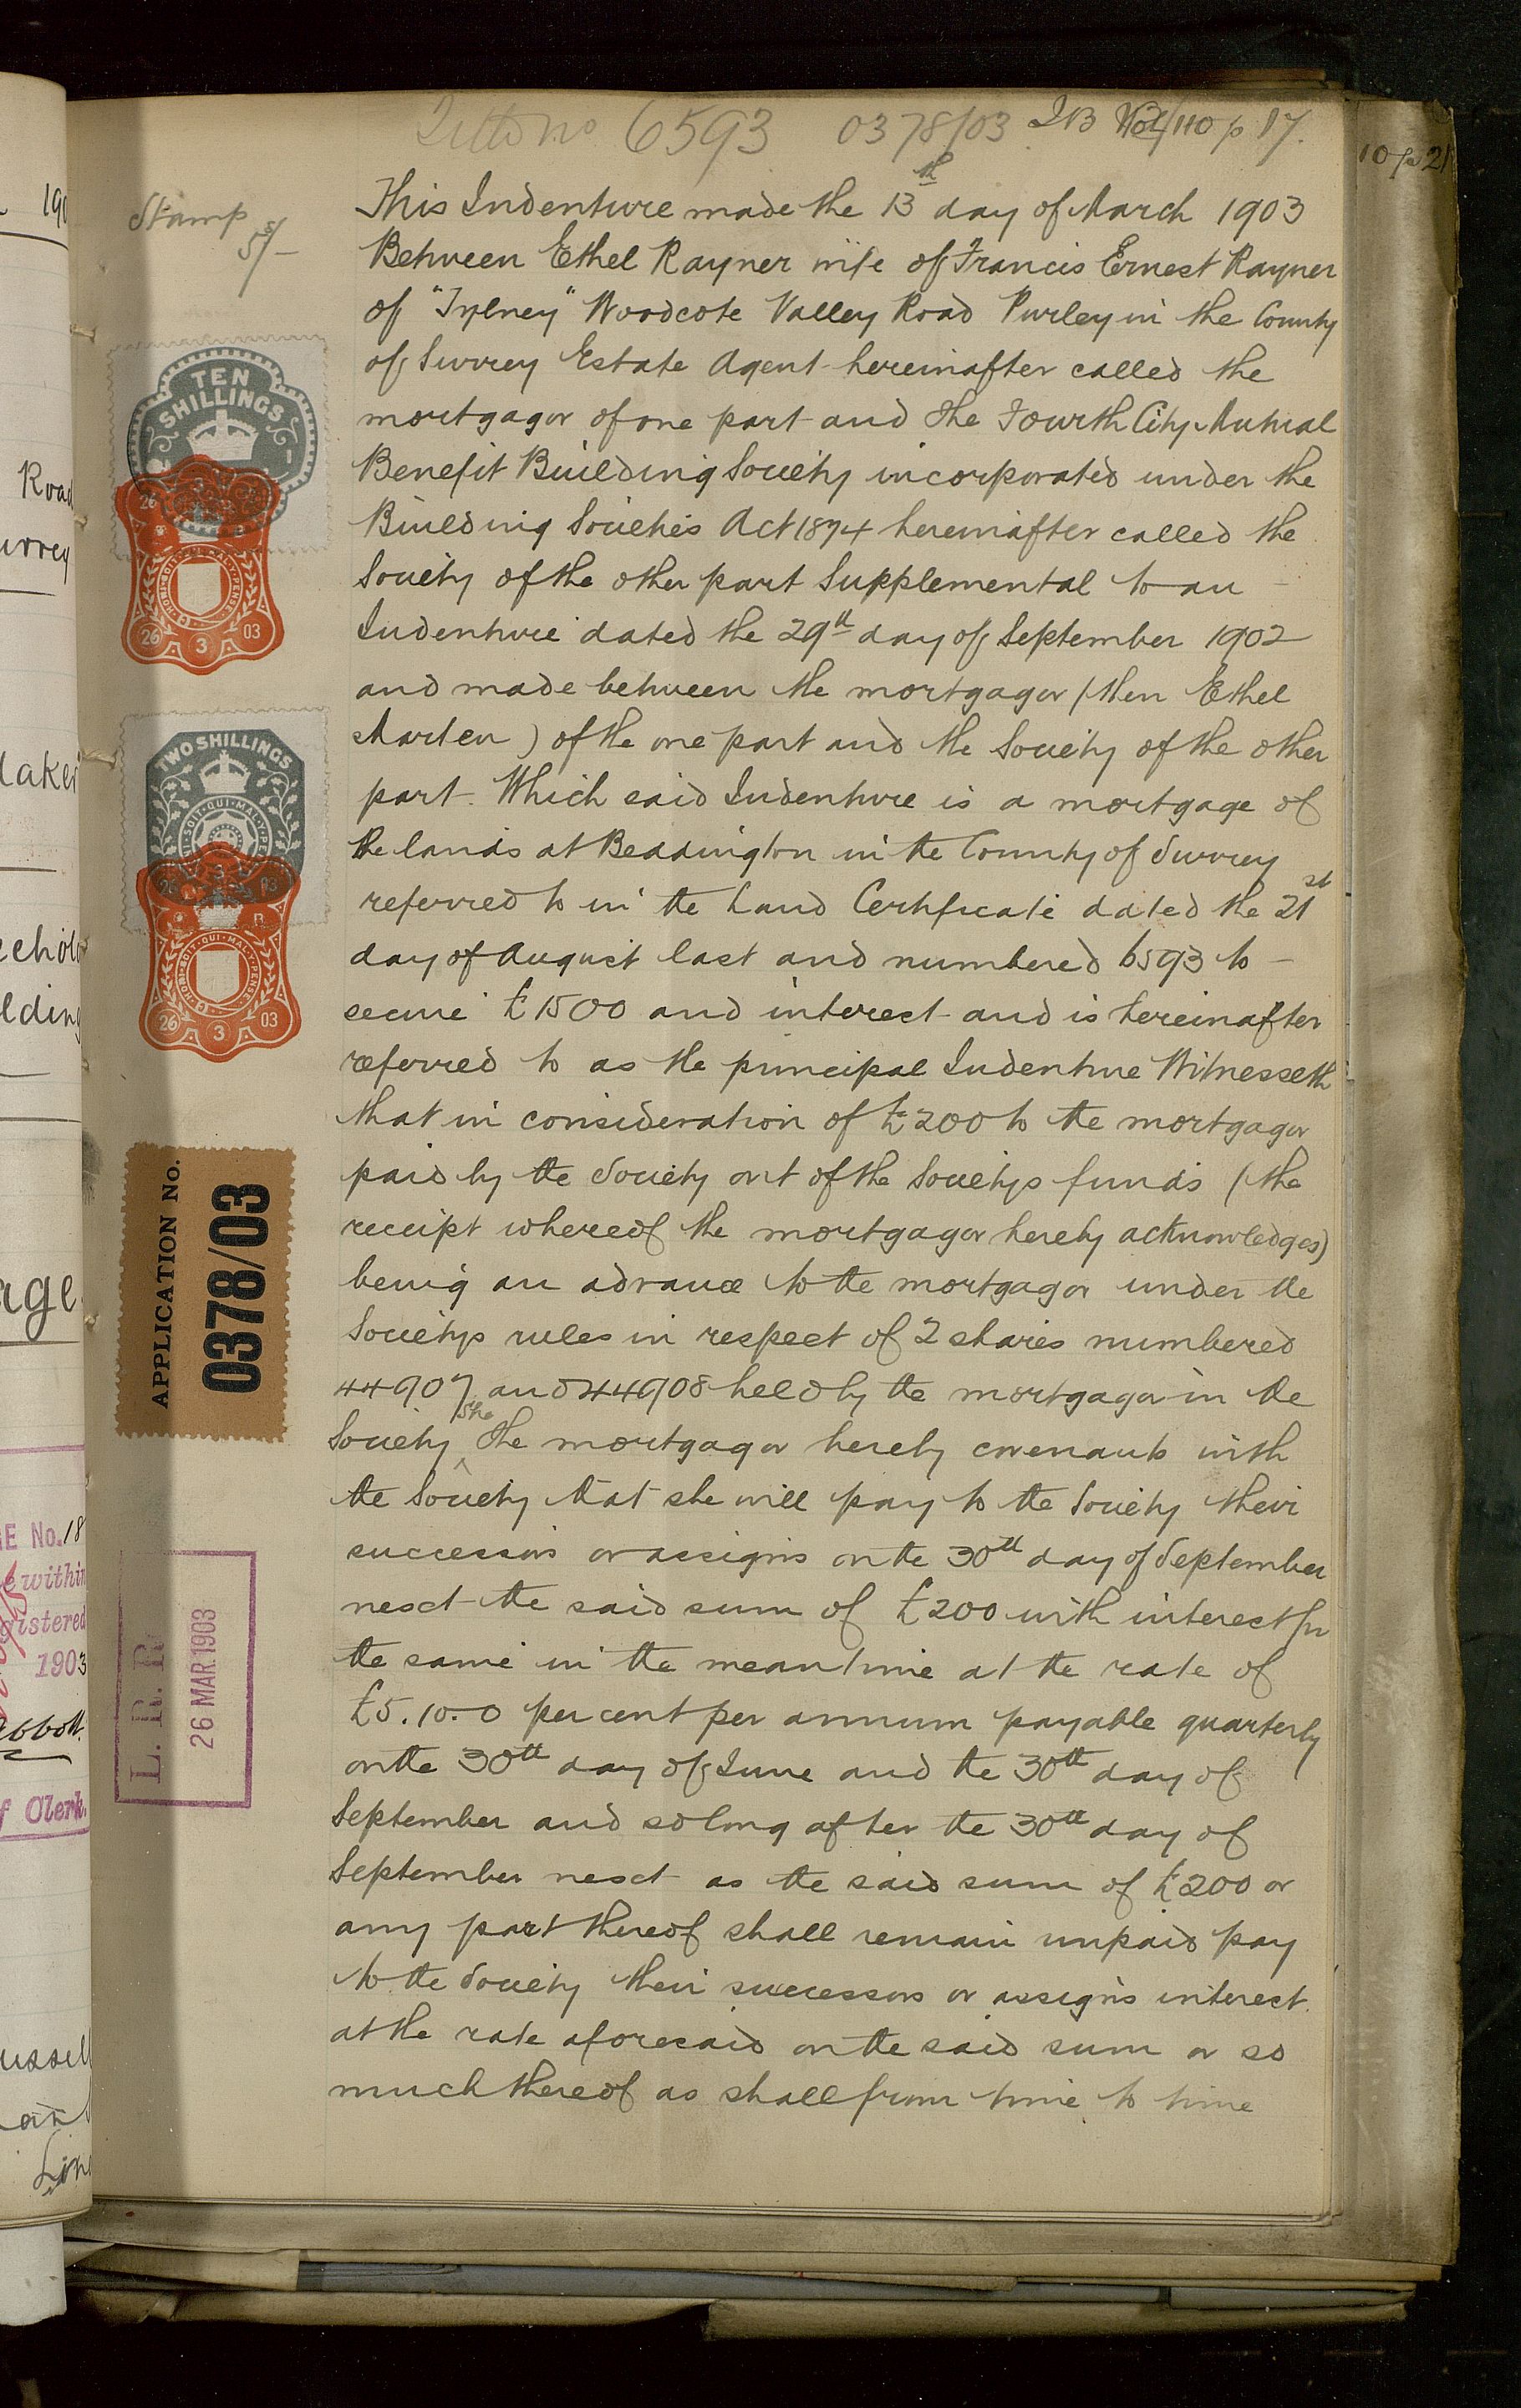 Title no 6593 0378/03 p 17.
10 p 21
Stamp 5/-
This Indenture made the 13th day of March 1903
Between Ethel Rayner wife of Francis Ernest Rayner
of "Tylney" Woodcote Valley Road Purley in the County
of Surrey Estate Agent hereinafter called the
mortgagor of one part and the Fourth City Mutual
Benefit Building Society incorporated under the
Building Societies Act 1874 hereinafter called the
Society of the other part Supplemental to an
Indenture dated the 29th day of September 1902
and made between the mortgagor (then Ethel
Marten) of the one part and the Society of the other
part. Which said Indenture is a mortgage of
the lands at Beddington in the County of Surrey
referred to in the Land Certificate dated the 21st
day of August last and numbered 6593 to
secure £1500 and interest and is hereinafter
referred to as the principal Indenture Witnesseth
that in consideration of £200 to the mortgagor
paid by the Society out of the Societys funds (the
receipt whereof the mortgagor hereby acknowledges)
being an advance to the mortgagor under the
Societys rules in respect of 2 shares numbered
44907 and 44908 held by the mortgagor in the
Society She the mortgagor hereby covenants with
the Society that she will pay to the Society their
successors or assigns on the 30th day of September
next the said sum of £200 with interest for
the same in the meantime at the rate of
£5.10.0 per cent per annum payable quarterly
on the 30th day of June and the 30th day of
September and so long after the 30th day of
September next as the said sum of £200 or
any part thereof shall remain unpaid pay
to the Society their successors or assigns interest
at the rate aforesaid on the said sum or so
much thereof as shall from time to time
TEN SHILLINGS
26 3 03
TWO SHILLINGS
26 3 03
APPLICATION No.
0378/03
L. R. R.
26 MAR. 1903
190
Road
urrey
aker
lding
age
E No. 18
within
gistered
1903
abbott.
f Clerk.
ussell